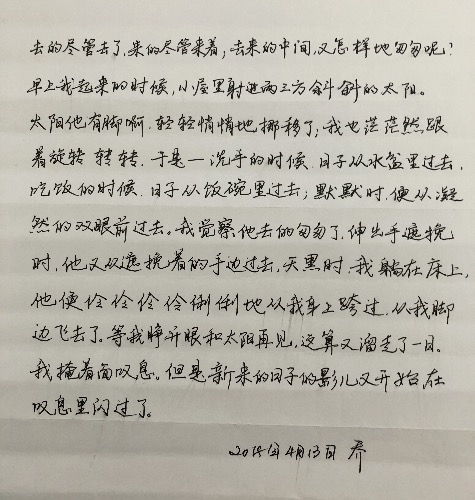 去的尽管去了,来的尽管来着,去来的中间,又怎样地匆匆呢?
早上我起来的时候,小屋里射进两三方斜斜的太阳。
太阳他有脚啊,轻轻悄悄地挪移了;我也茫茫然跟
着旋转 转转.于是一洗手的时候.日子从水盆里过去,
吃饭的时候.日子从饭碗里过去;默默时.便从凝
然的双眼前过去。我觉察他去的匆匆了,伸出手遮挽
时,他又从遮挽着的手边过去,天黑时.我躺在床上,
他便伶伶伶伶俐俐地从我身上跨过,从我脚
边飞去了.等我睁开眼和太阳再见,这算又溜走了一日。
我掩着面叹息。但是新来的日子的影儿又开始.在
叹息里闪过了。
年4月13日